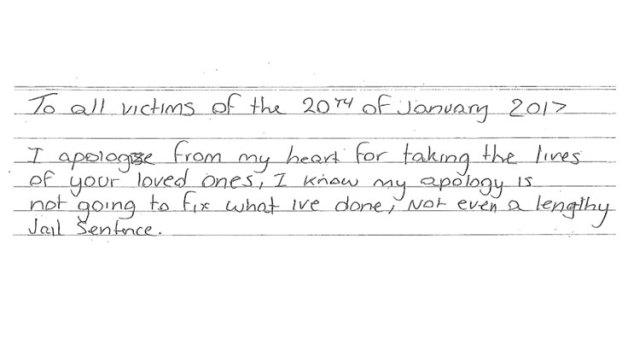 To all victims of the 20TH of January 2017
I apologise from my heart for taking the lives
of your loved ones, I know my apology is
not going to fix what ive done, Not even a lengthy
Jail Sentence.